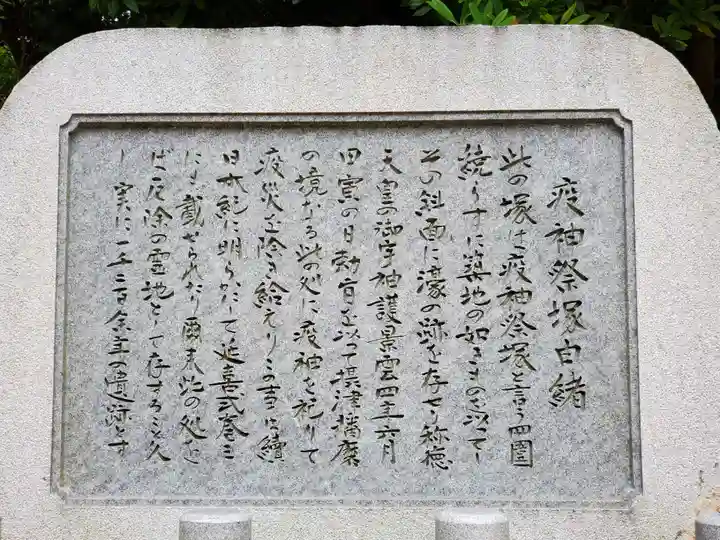 疫神祭塚由緒
此の塚は疫神祭塚と言う四囲
繞らすに築地の如きものを以てし
その斜面に濠の跡を存せり称徳
天皇の御宇神護景雲四年六月
甲寅の日勅旨を以って摂津播磨
の境なる此の処に疫神を祀りて
疫災を除き給えりこの事は續
日本紀に明らかにして延喜式巻三
にも載せられたり爾来此の処を
ば厄除の霊地として存すること久
し実に一千二百余年の遺跡とす